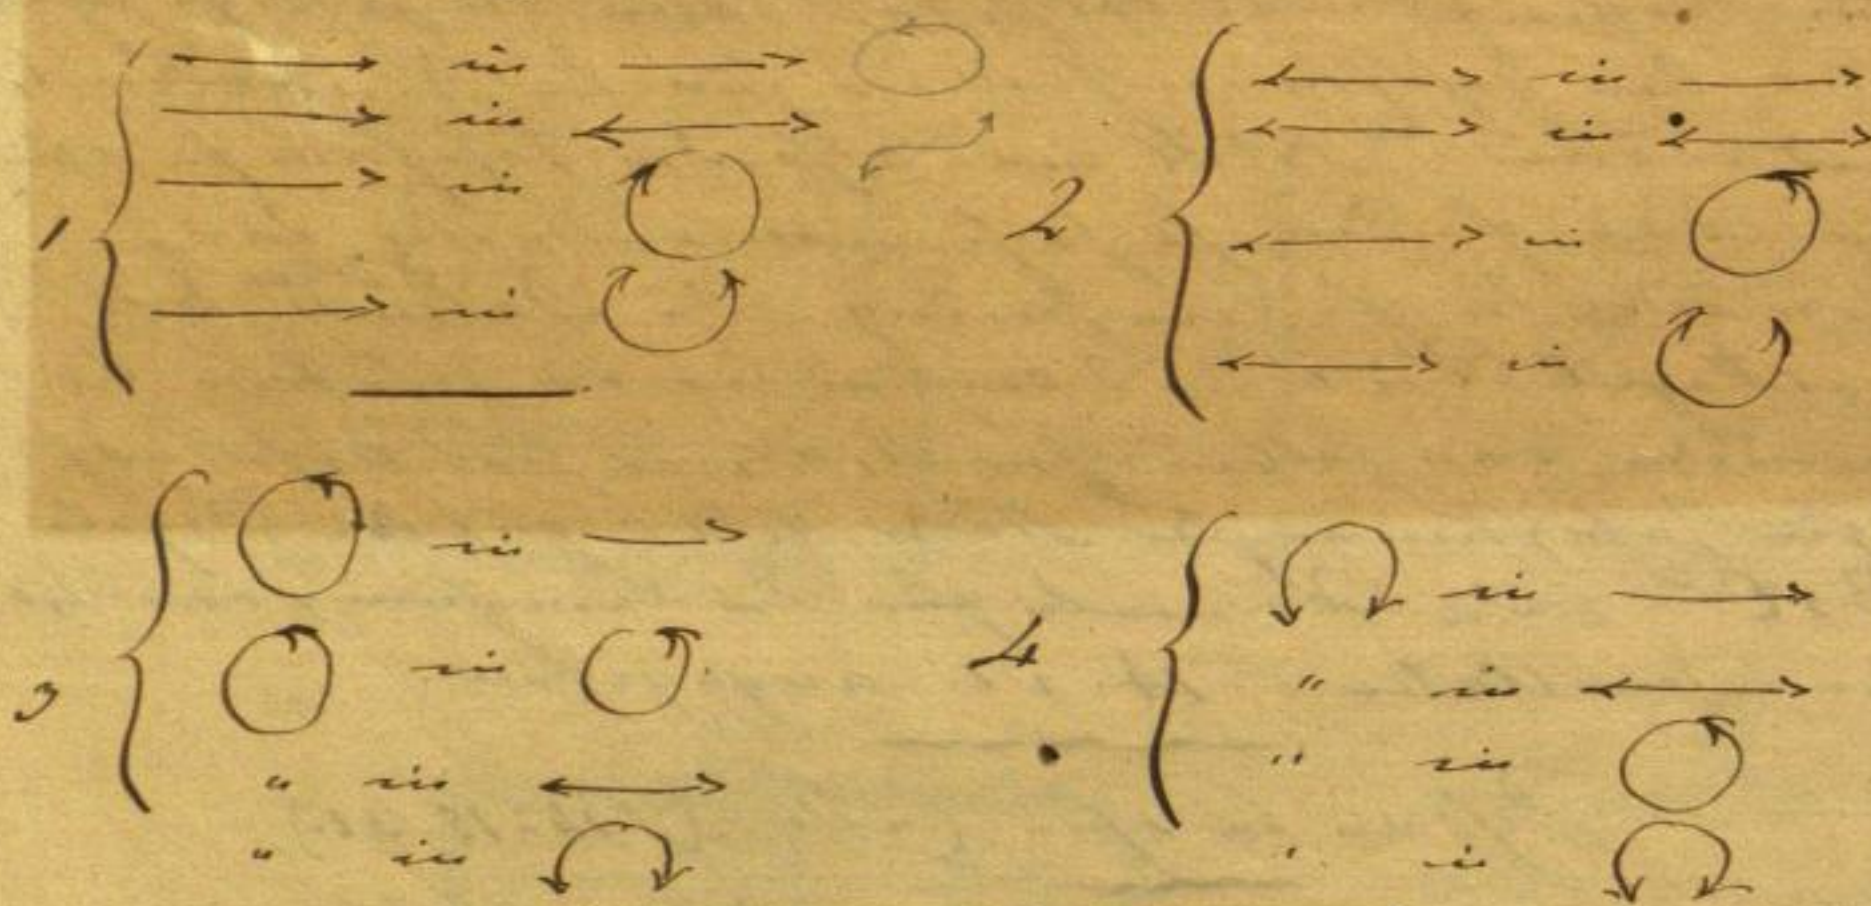 1
in
in
in
in
2
in
in
in
in
3
in
in
" in
" in
4
in
" in
" in
" in